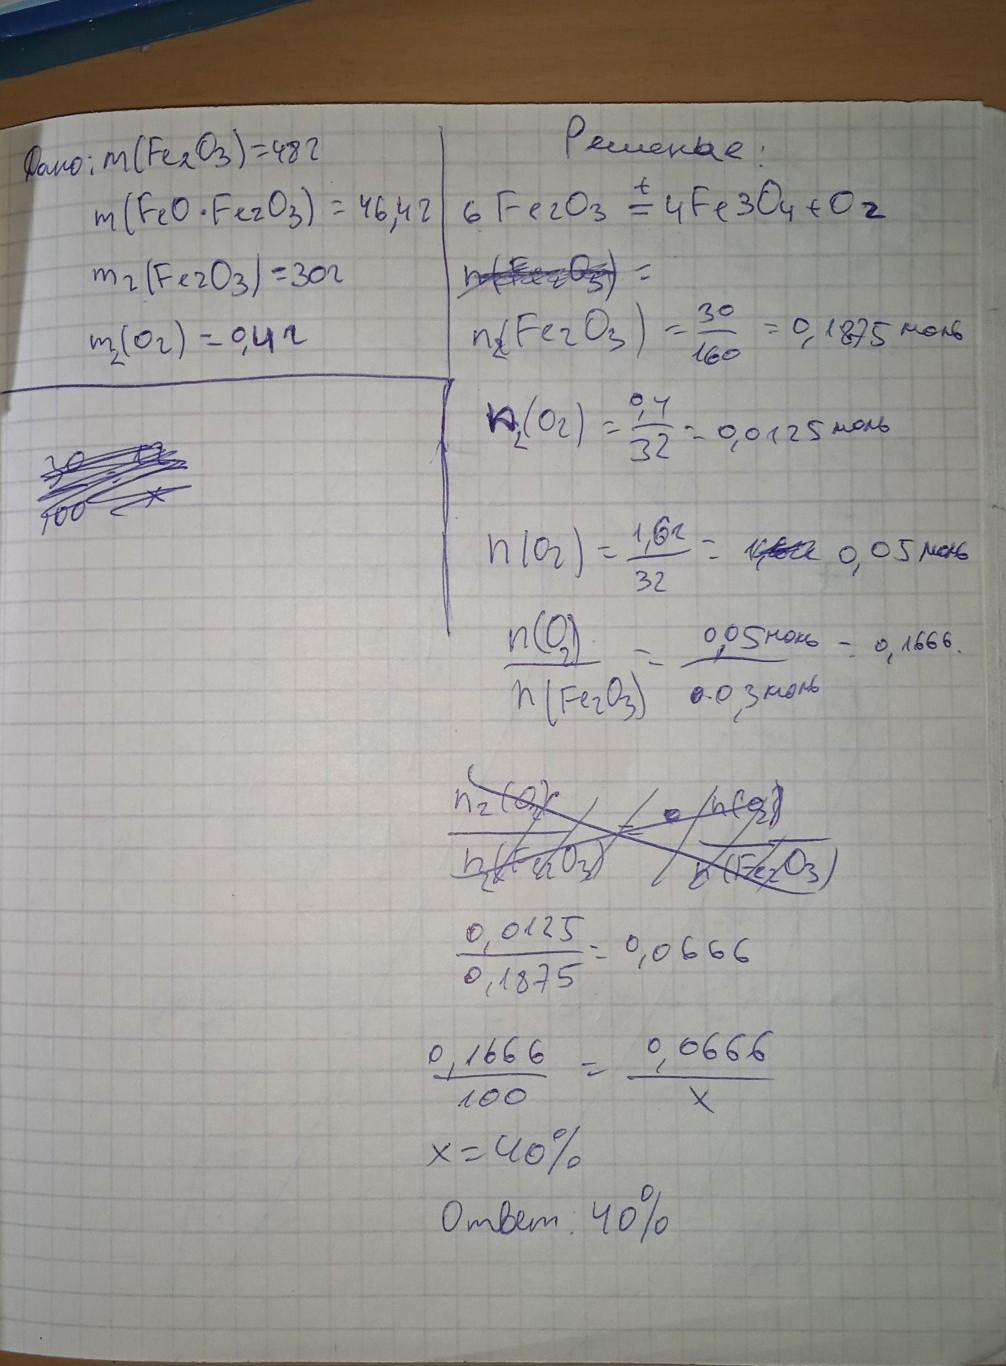 Дано: m(Fe2O3)=48г
m(FeO·Fe2O3) = 46,4г
m2(Fe2O3)=30г
m2(O2) = 0,4г
30
100 x
Решение:
6 Fe2O3 t= 4Fe3O4+O2
n(Fe2O3) =
n2(Fe2O3) = 30/160 = 0,1875 моль
n2(O2) = 0,4/32 = 0,0125 моль
n(O2) = 1,6г/32 = 0,05 моль
n(O2)/n(Fe2O3) = 0,05 моль/0,3 моль = 0,1666.
n2(O2)/n2(Fe2O3) = n(O2)/n(Fe2O3)
0,0125/0,1875 = 0,0666
0,1666/100 = 0,0666/x
x=40%
Ответ: 40%